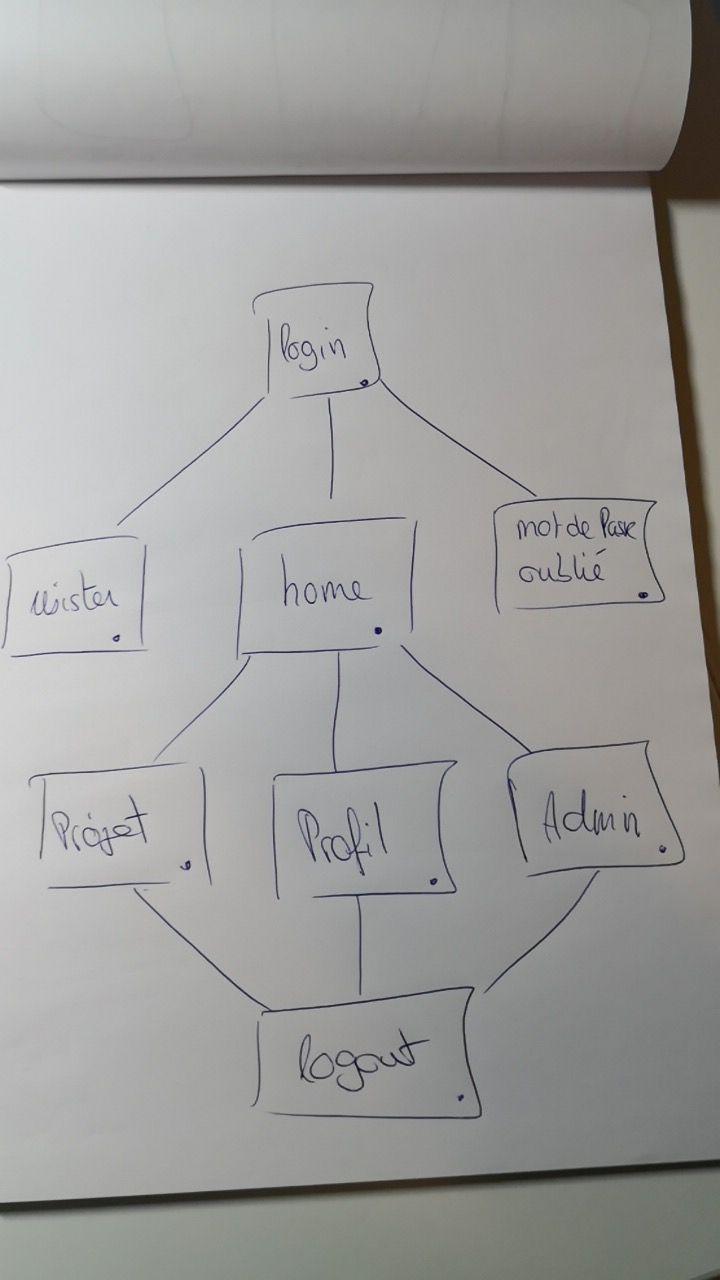 login
home
mot de Passe
oublié
Projet
Profil
Admin
logout